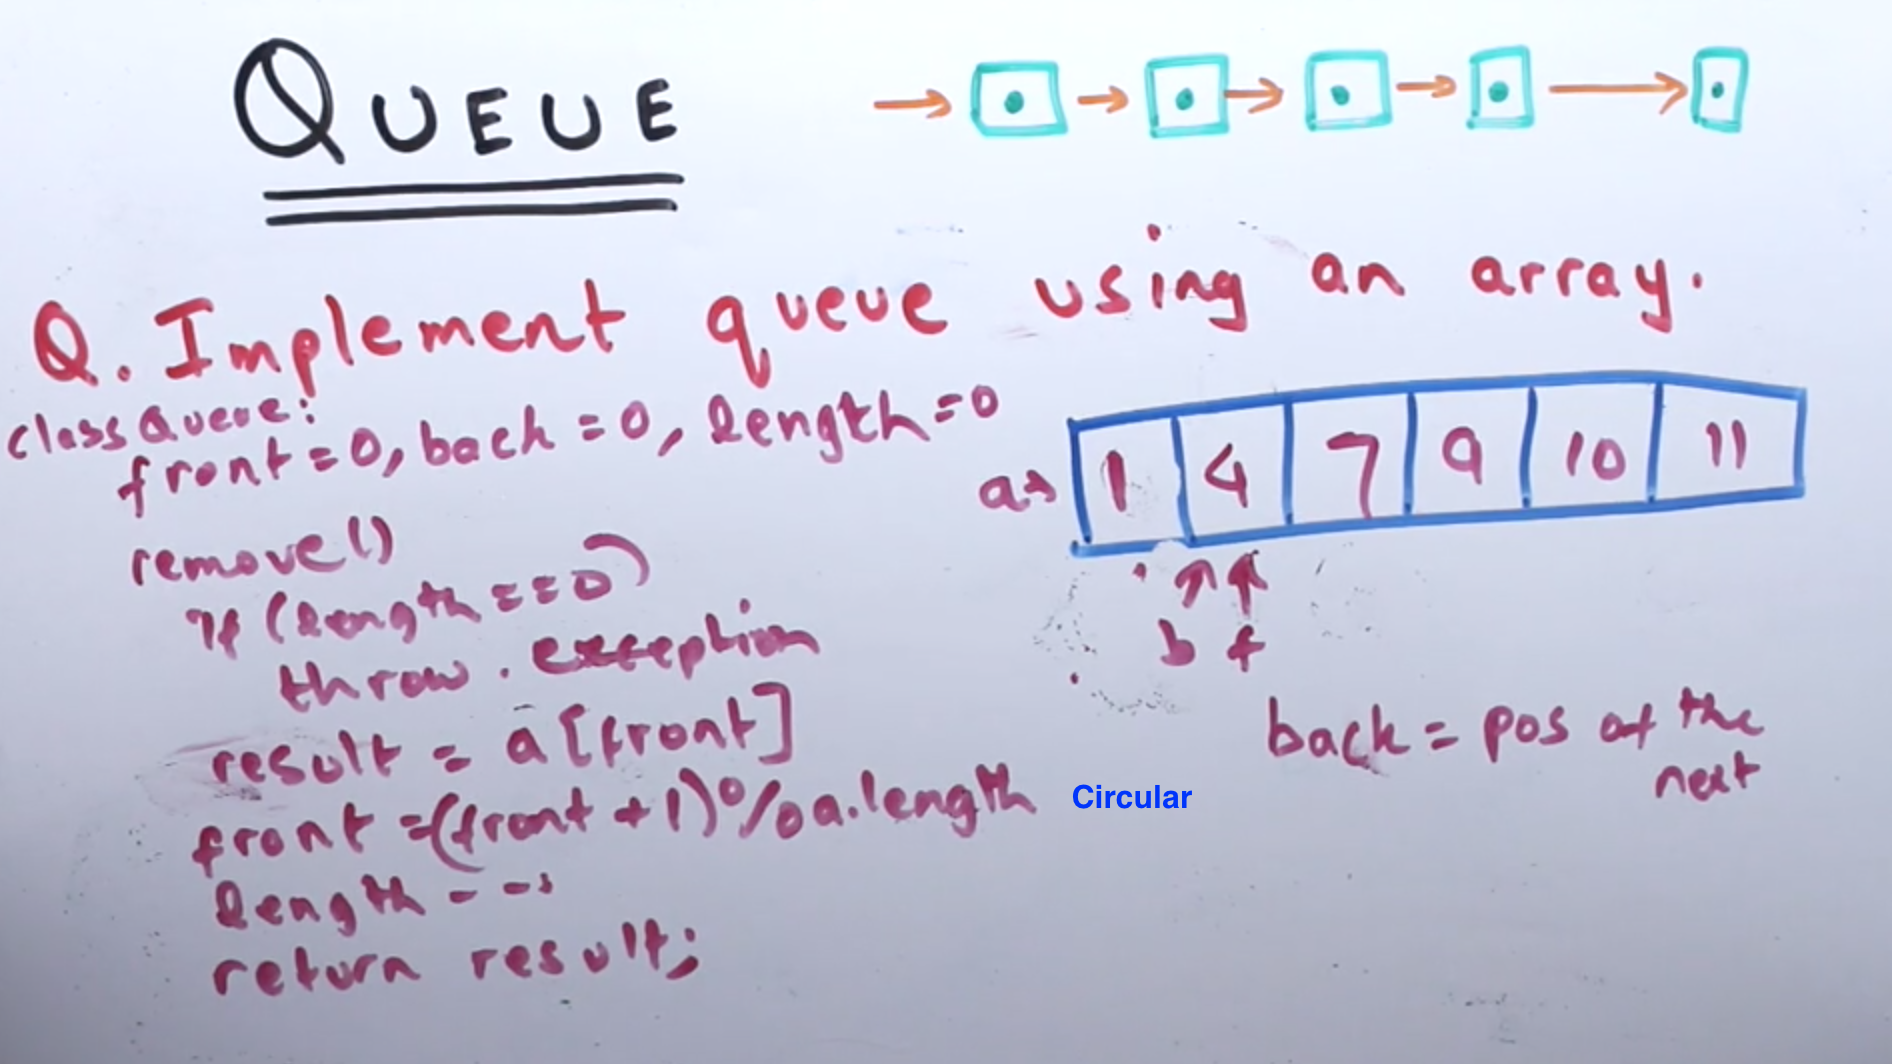 QUEUE
Q. Implement queue using an array.
class Queue:
front = 0, back = 0, length = 0
remove()
if (length == 0)
throw exception
result = a[front]
front = (front + 1) % a.length
length --;
return result;
a→ 1 4 7 9 10 11
b f
back = pos of the
next
Circular